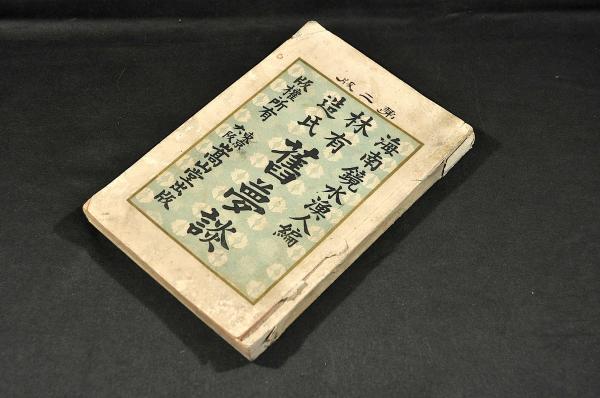 第二版
海南鏡水漁人編
林有造氏
舊夢談
版權所有
東京
大阪
嵩山堂出版